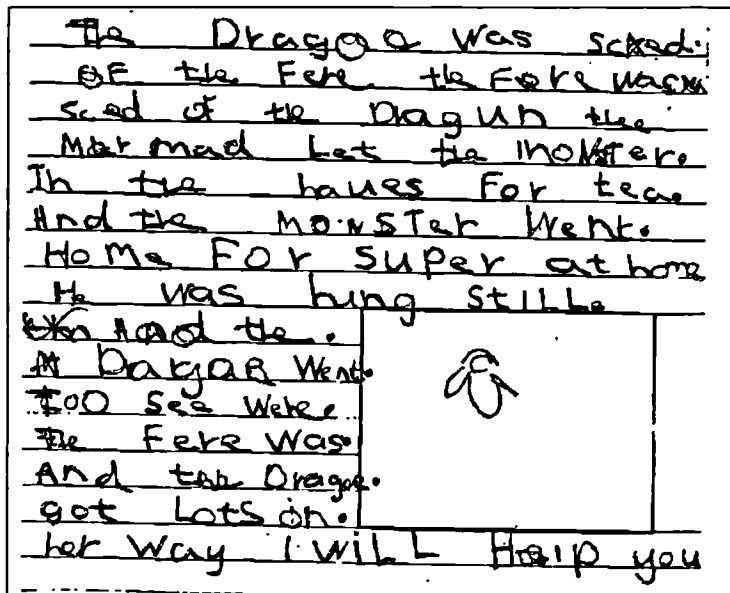 The Dragoo was scked.
OF the Fere the Fore was
sced of the Dragun the
Mar mad Let the monster.
In the haues For tea.
And the MONSTer Went.
Home For super at home
He was hung stiLL.
And the.
Dargag Went.
Too See Were.
The Fere was.
And the Dragoe.
got Lots in.
her way I wiLL Help you